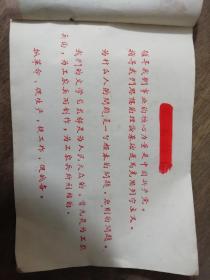 领导我们事业的核心力量是中国共产党。
指导我们思想的理论基础是马克思列宁主义。
为什么人的问题，是一个根本的问题，原则的问题。
我们的文学艺术都是为人民大众的，首先是为工农
兵的，为工农兵而创作，为工农兵所利用的。
抓革命，促生产，促工作，促战备。